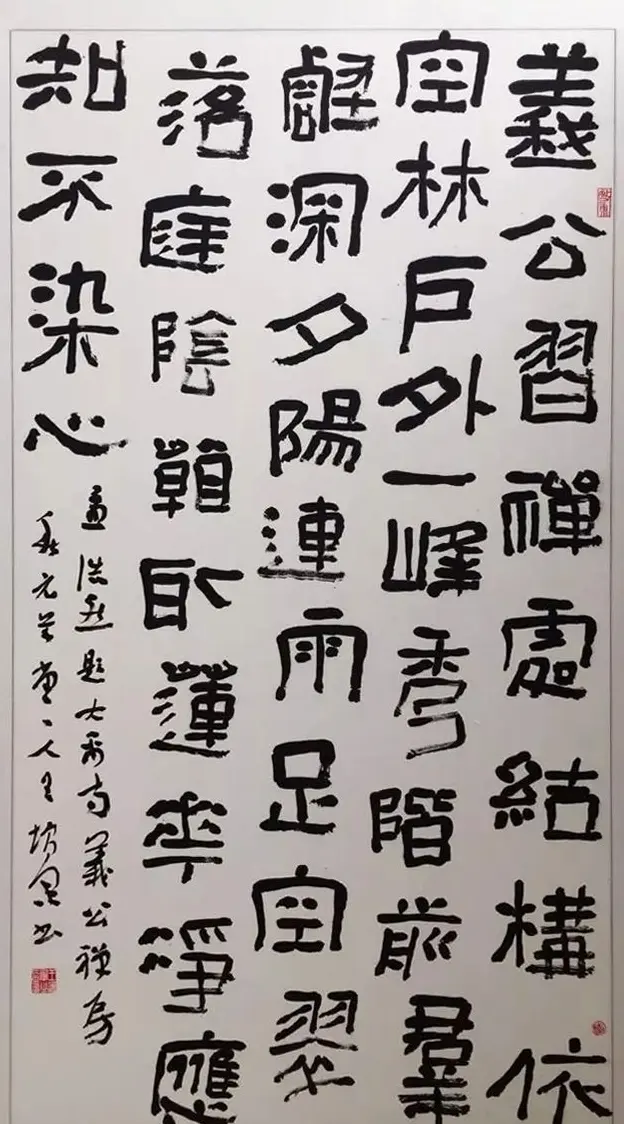 義公習禪處結構依
空林戶外一峰秀階前羣
壑深夕陽連雨足空翠
落庭陰看取蓮華淨應
知不染心
孟浩然題大禹寺義公禪房
元堂人王书